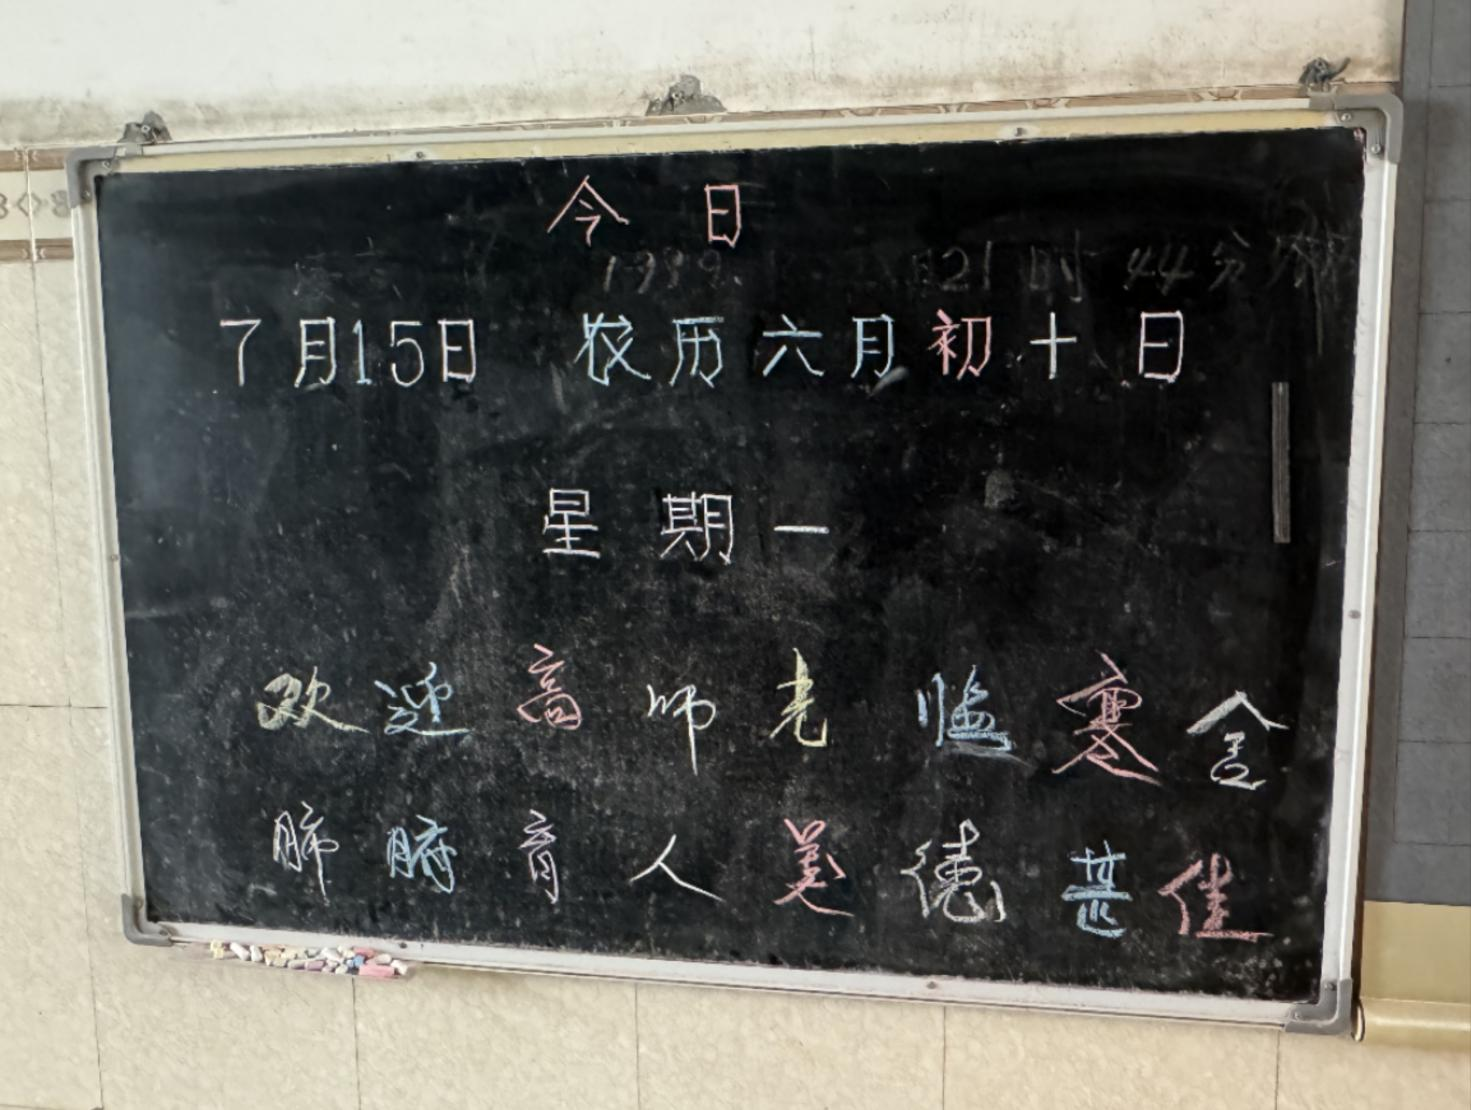 今日
1999. 21时44分
7月15日 农历六月初十日
星期一
欢迎高师光临寒舍
肺腑育人美德甚佳